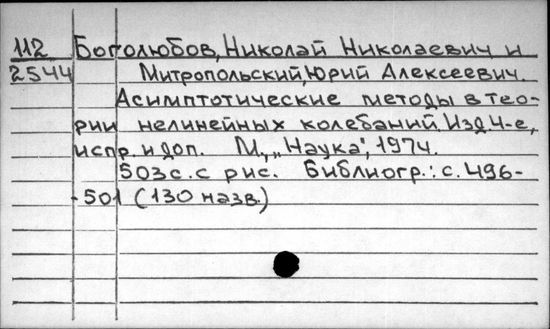 112 Боголюбов, Николай Николаевич и
2544 Митропольский, Юрий Алексеевич.
Асимптотические методы в тео-
рии нелинейных колебаний. Изд. 4-е,
испр. и доп. М., „Наука", 1974.
503 с. с рис. Библиогр.: с. 496-
-501 (130 назв.)